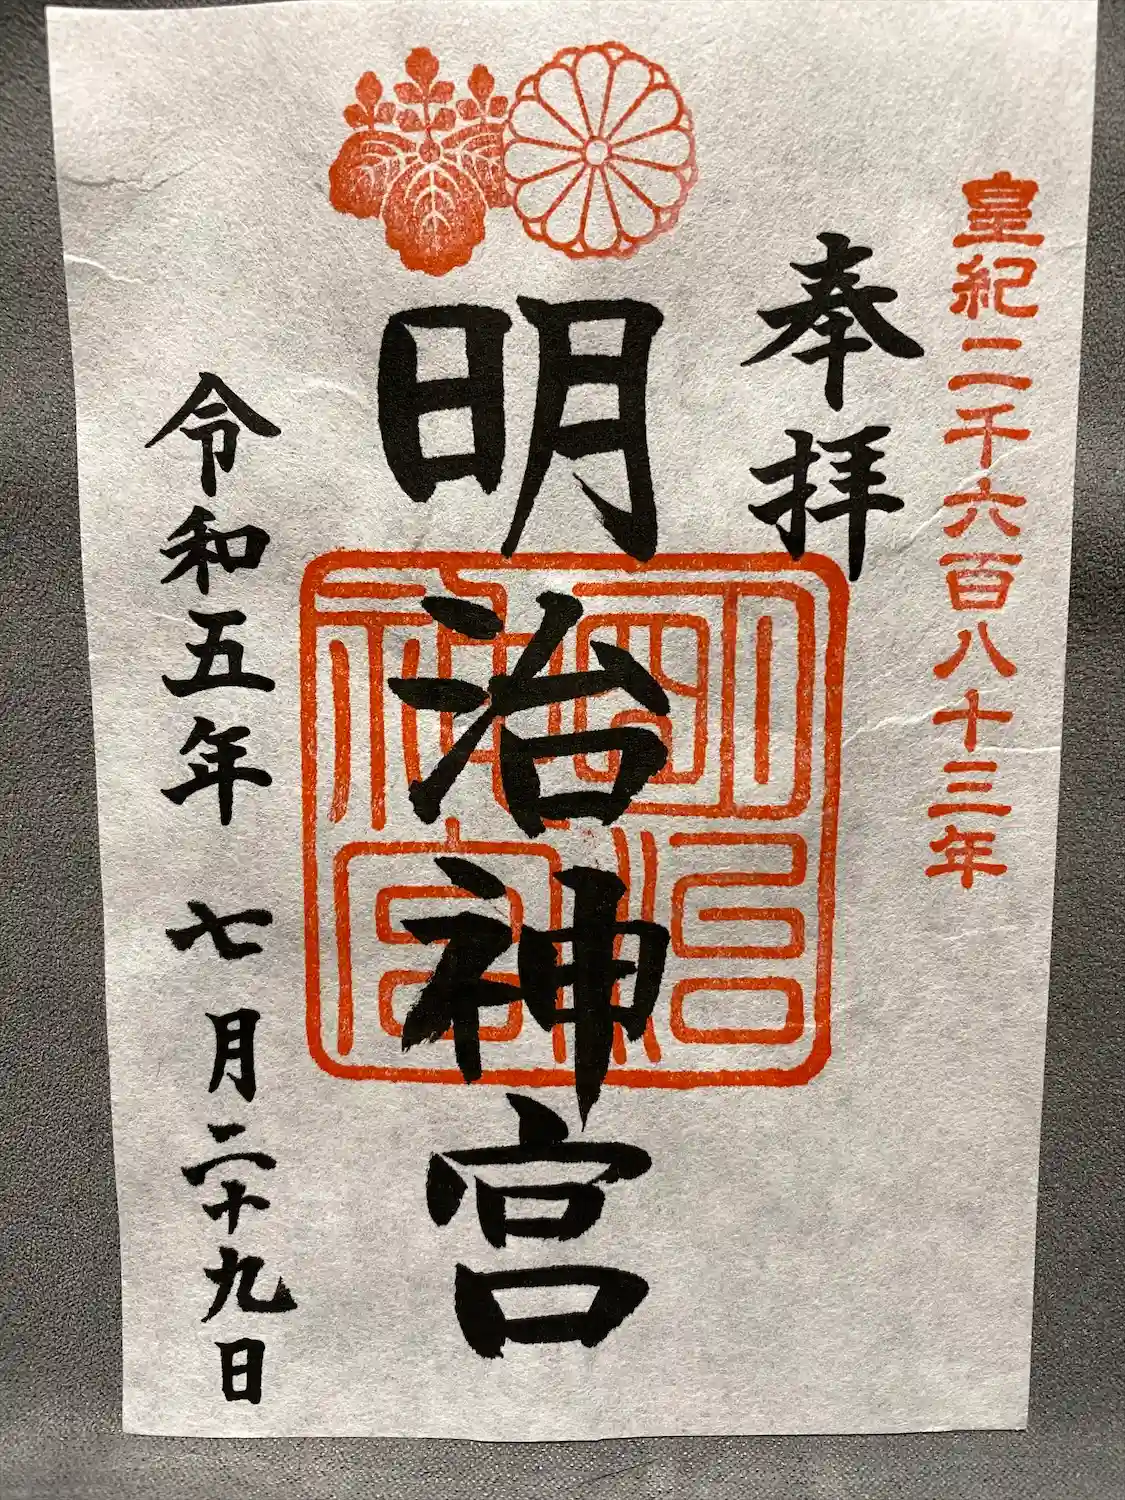 皇紀二千六百八十三年
奉拝
明治神宮
明治神宮
令和五年 七月二十九日